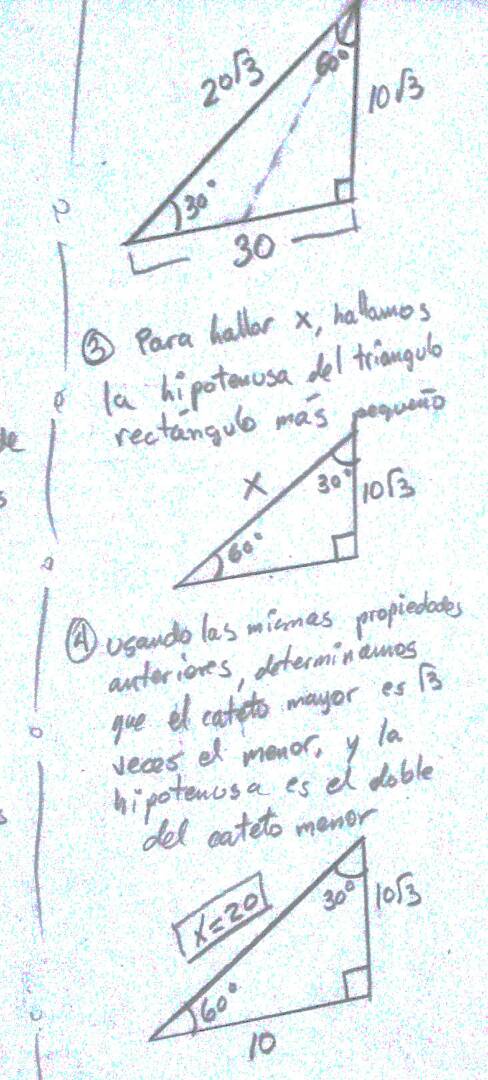 20√3
60°
10√3
30°
30
③ Para hallar x, hallamos
la hipotenusa del triangulo
rectángulo más pequeño
x
30°
10√3
60°
④ usando las mismas propiedades
anteriores, determinamos
que el cateto mayor es √3
veces el menor, y la
hipotenusa es el doble
del cateto menor
x=20
30°
10√3
60°
10